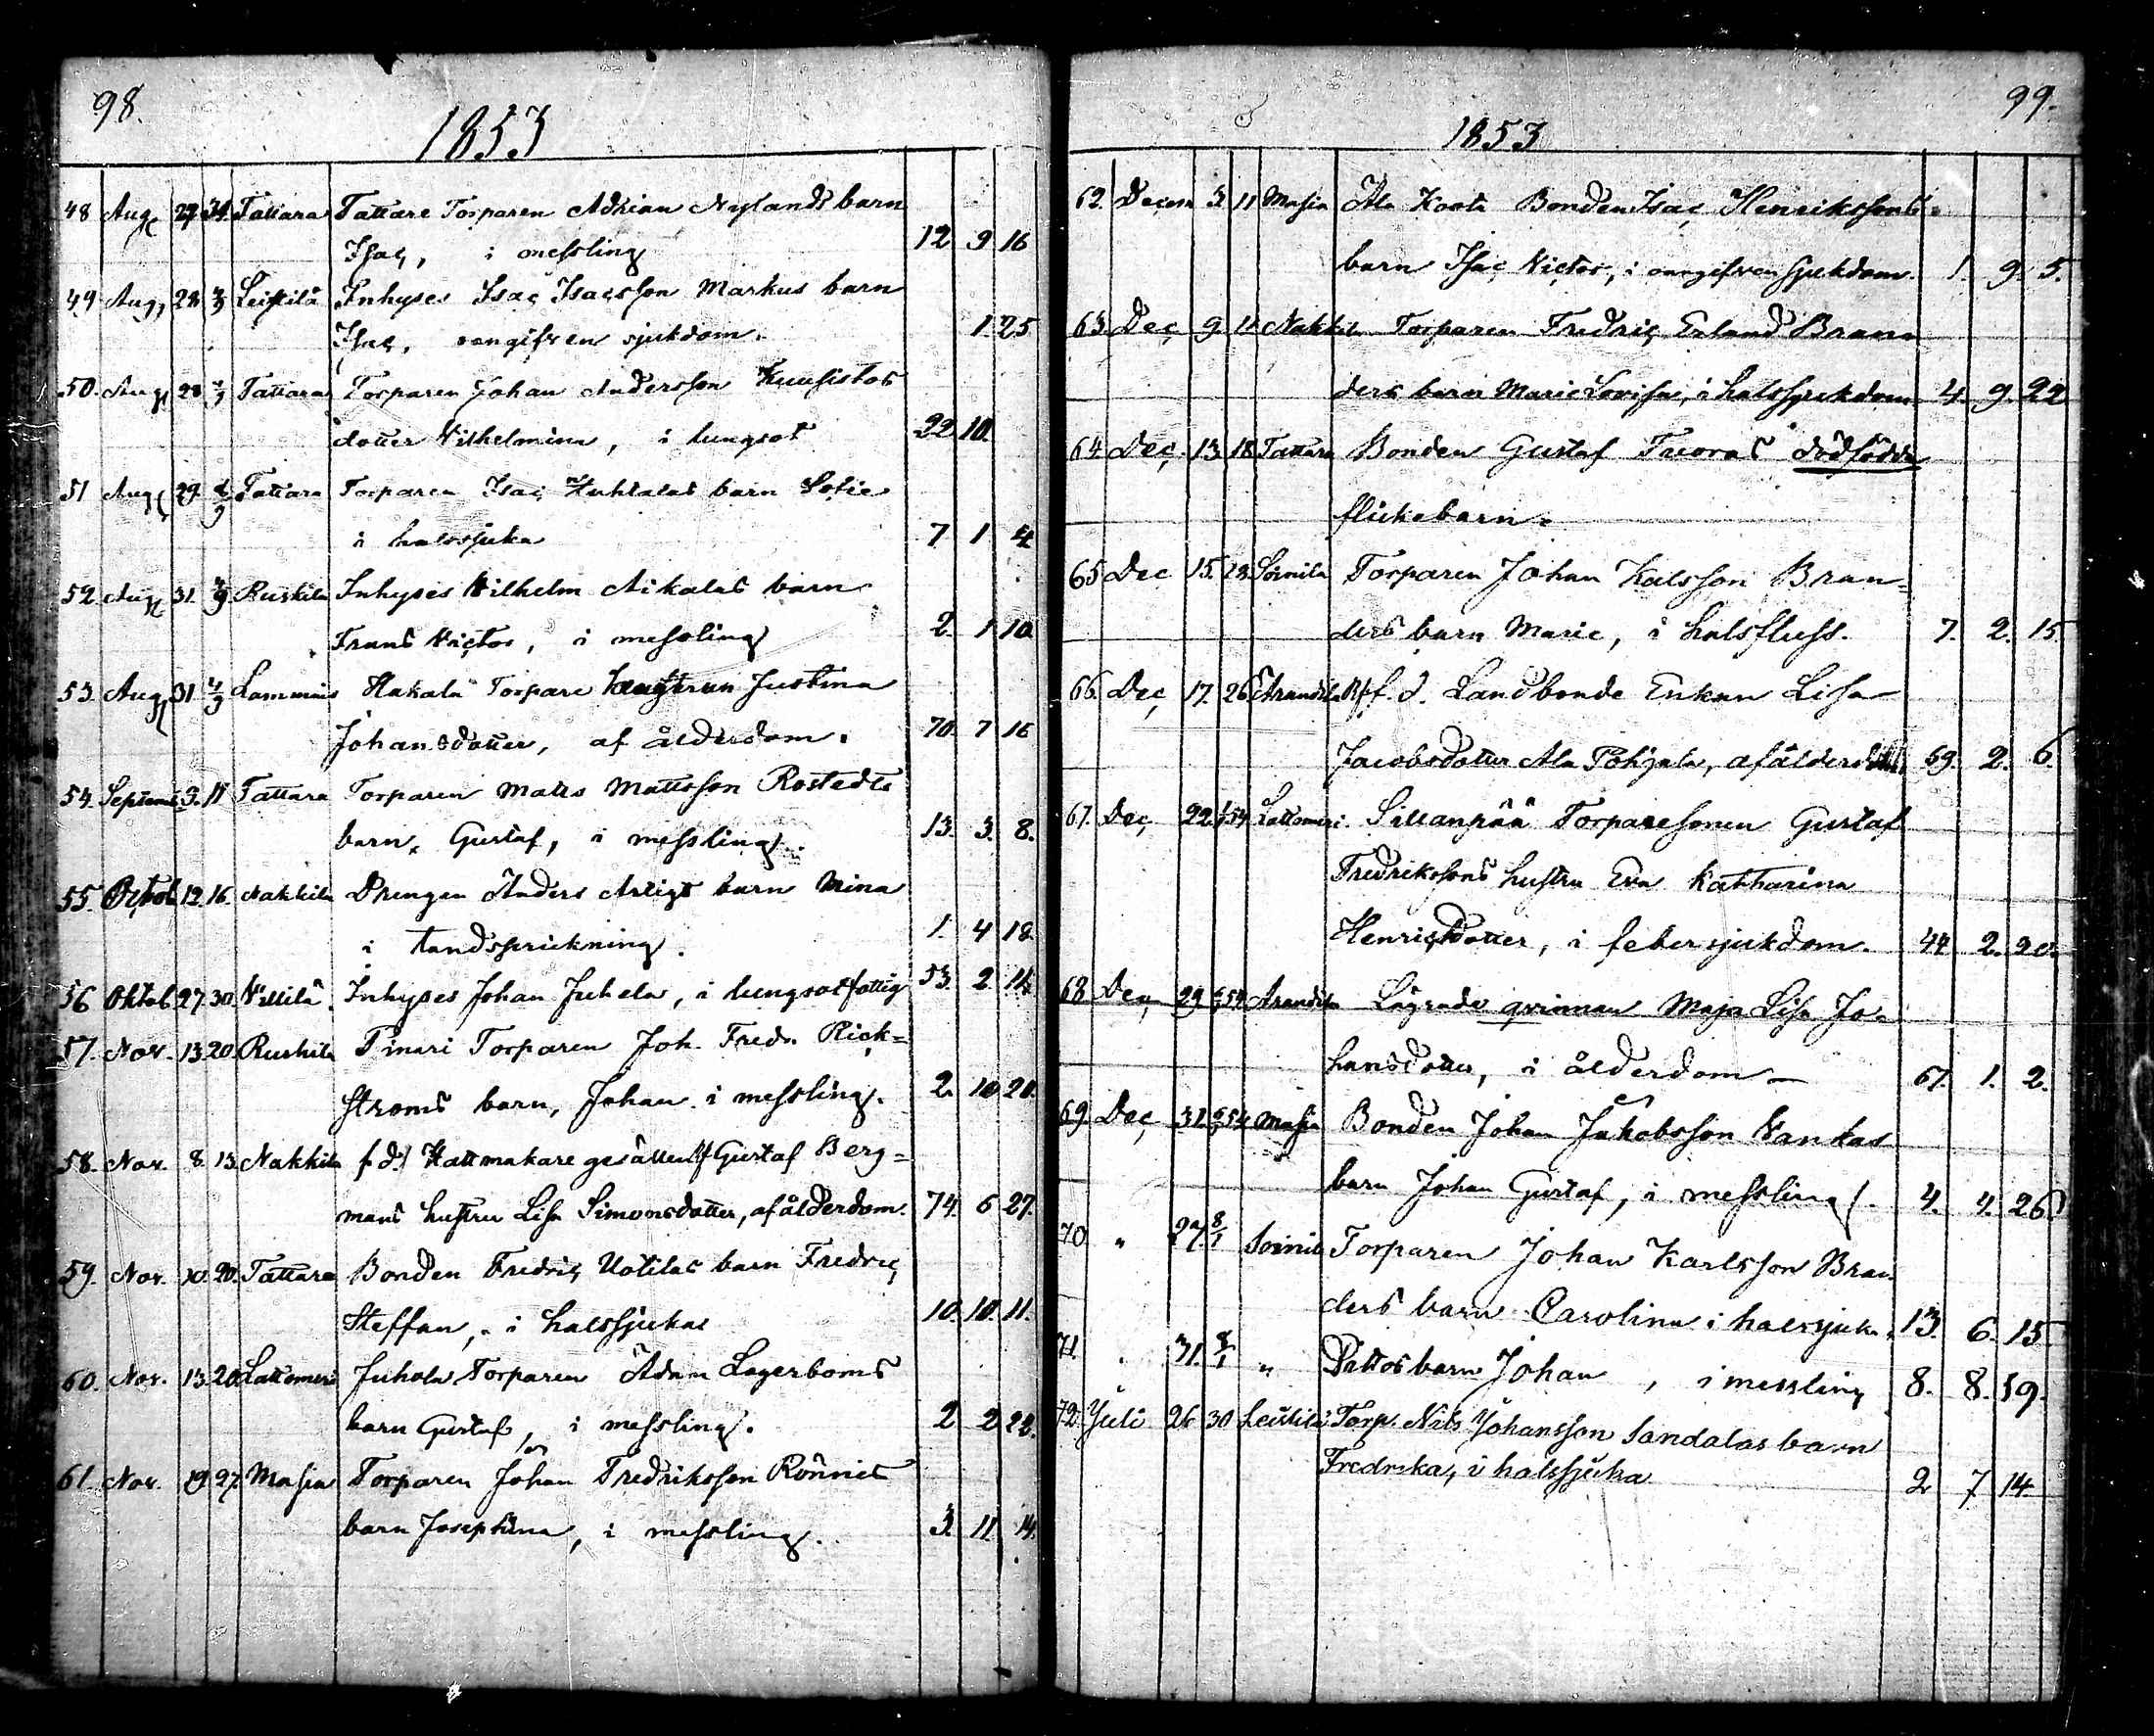 98.
1853
48 Aug 27 34. Tattara Tattare Torparen Adrian Nylands barn
Isac, i messling 12 9 16
49 Aug 28 4/9 Leistilä Inhyses Isac Isacsson Markus barn
Isac, oangifven sjukdom. 1. 25
50. Aug 28 4/9 Tattara Torparen Johan Andersson Kuusistos
dotter Wilhelmina, i lungsot 22 10.
51 Aug 29. 4/9 Tattara Torparen Isac Huhtalas barn Sofie
i halssjuka 7 1 4
52. Aug 31. 4/9 Ruskila Inhyses Wilhelm Nikalas barn
Frans Victor, i messling 2. 1 10.
53. Aug 31 4/9 Lammais Hakala Torpare Justina
Johansdotter, af ålderdom. 70. 7 16
54. Septemb 3. 11 Tattara Torparen Matts Mattsson Rostedts
barn, Gustaf, i messling. 13. 3. 8.
55. Octob 12. 16. Nakkila Drengen Anders Artigs barn Mina
i tandsprickning. 1. 4 18.
56 Oktob 27. 30. Villilä. Inhyses Johan Juhela, i lungsot fattig 53. 2 14
57. Nov. 13 20. Ruskila Pinari Torparen Joh. Fredr. Rick=
stroms barn, Johan i messling. 2. 10 20.
58. Nov. 8. 13. Nakkila f.d. Hattmakare gesällen Gustaf Berg=
mans hustru Lisa Simonsdotter, af ålderdom. 74. 6 27.
59. Nov. 10. 20. Tattara Bonden Fredric Uotilas barn Fredric
Steffan, i halssjuka 10. 10. 11.
60. Nov. 13. 20. Lattomeri Juhola Torparen Adam Lagerboms
barn Gustaf, i messling. 2 2 22.
61. Nov. 19 27. Masia Torparen Johan Fredriksson Rönnis
barn Josephina, i messling. 3. 11 14.
99.
1853
62. Decem 3 11 Masia Ala Koota Bonden Isac Henrikssons
barn Isac Victor, i oangifven sjukdom. 1. 9. 5.
63. Dec 9. 11 Nakkila Torparen Fredric Erland Bran
ders barn Marie Lovisa, i halssjukdom 4. 9. 22
64 Dec. 13. 18 Tattara Bonden Gustaf Tuoras dödfödda
flickebarn.
65 Dec 15. 18. Soinila Torparen Johan Kalsson Bran=
ders barn Marie, i halsfluss. 7. 2. 15.
66. Dec 17. 26. Arandila f.d. Landbonde Enkan Lisa
Jacobsdotter Ala Pohjala, af ålderdom 69. 2. 6.
67. Dec 22. 1/1 54 Lattomeri Sillanpää Torparesonen Gustaf
Fredrikssons hustru Eva Katharina
Henricsdotter, i febersjukdom. 44 2. 20.
68. Dec 29 6/1 54 Arandila Lägrade qvinnan Maja Lisa Jo=
hansdotter, i ålderdom 67. 1. 2.
69. Dec 31. 6/1 54 Masia Bonden Johan Jakobsson Nankas
barn Johan Gustaf, i messling. 4. 4. 26
70 " 27 8/1 Soinila Torparen Johan Karlsson Bran
ders barn Carolina i halssjuka. 13. 6. 15
71. " 31. 8/1 " Dittos barn Johan, i messling 8. 8. 19.
72. Juli 26 30 Leistilä Torp. Nils Johansson Sandalas barn
Fredrika, i halssjuka 2 7 14.